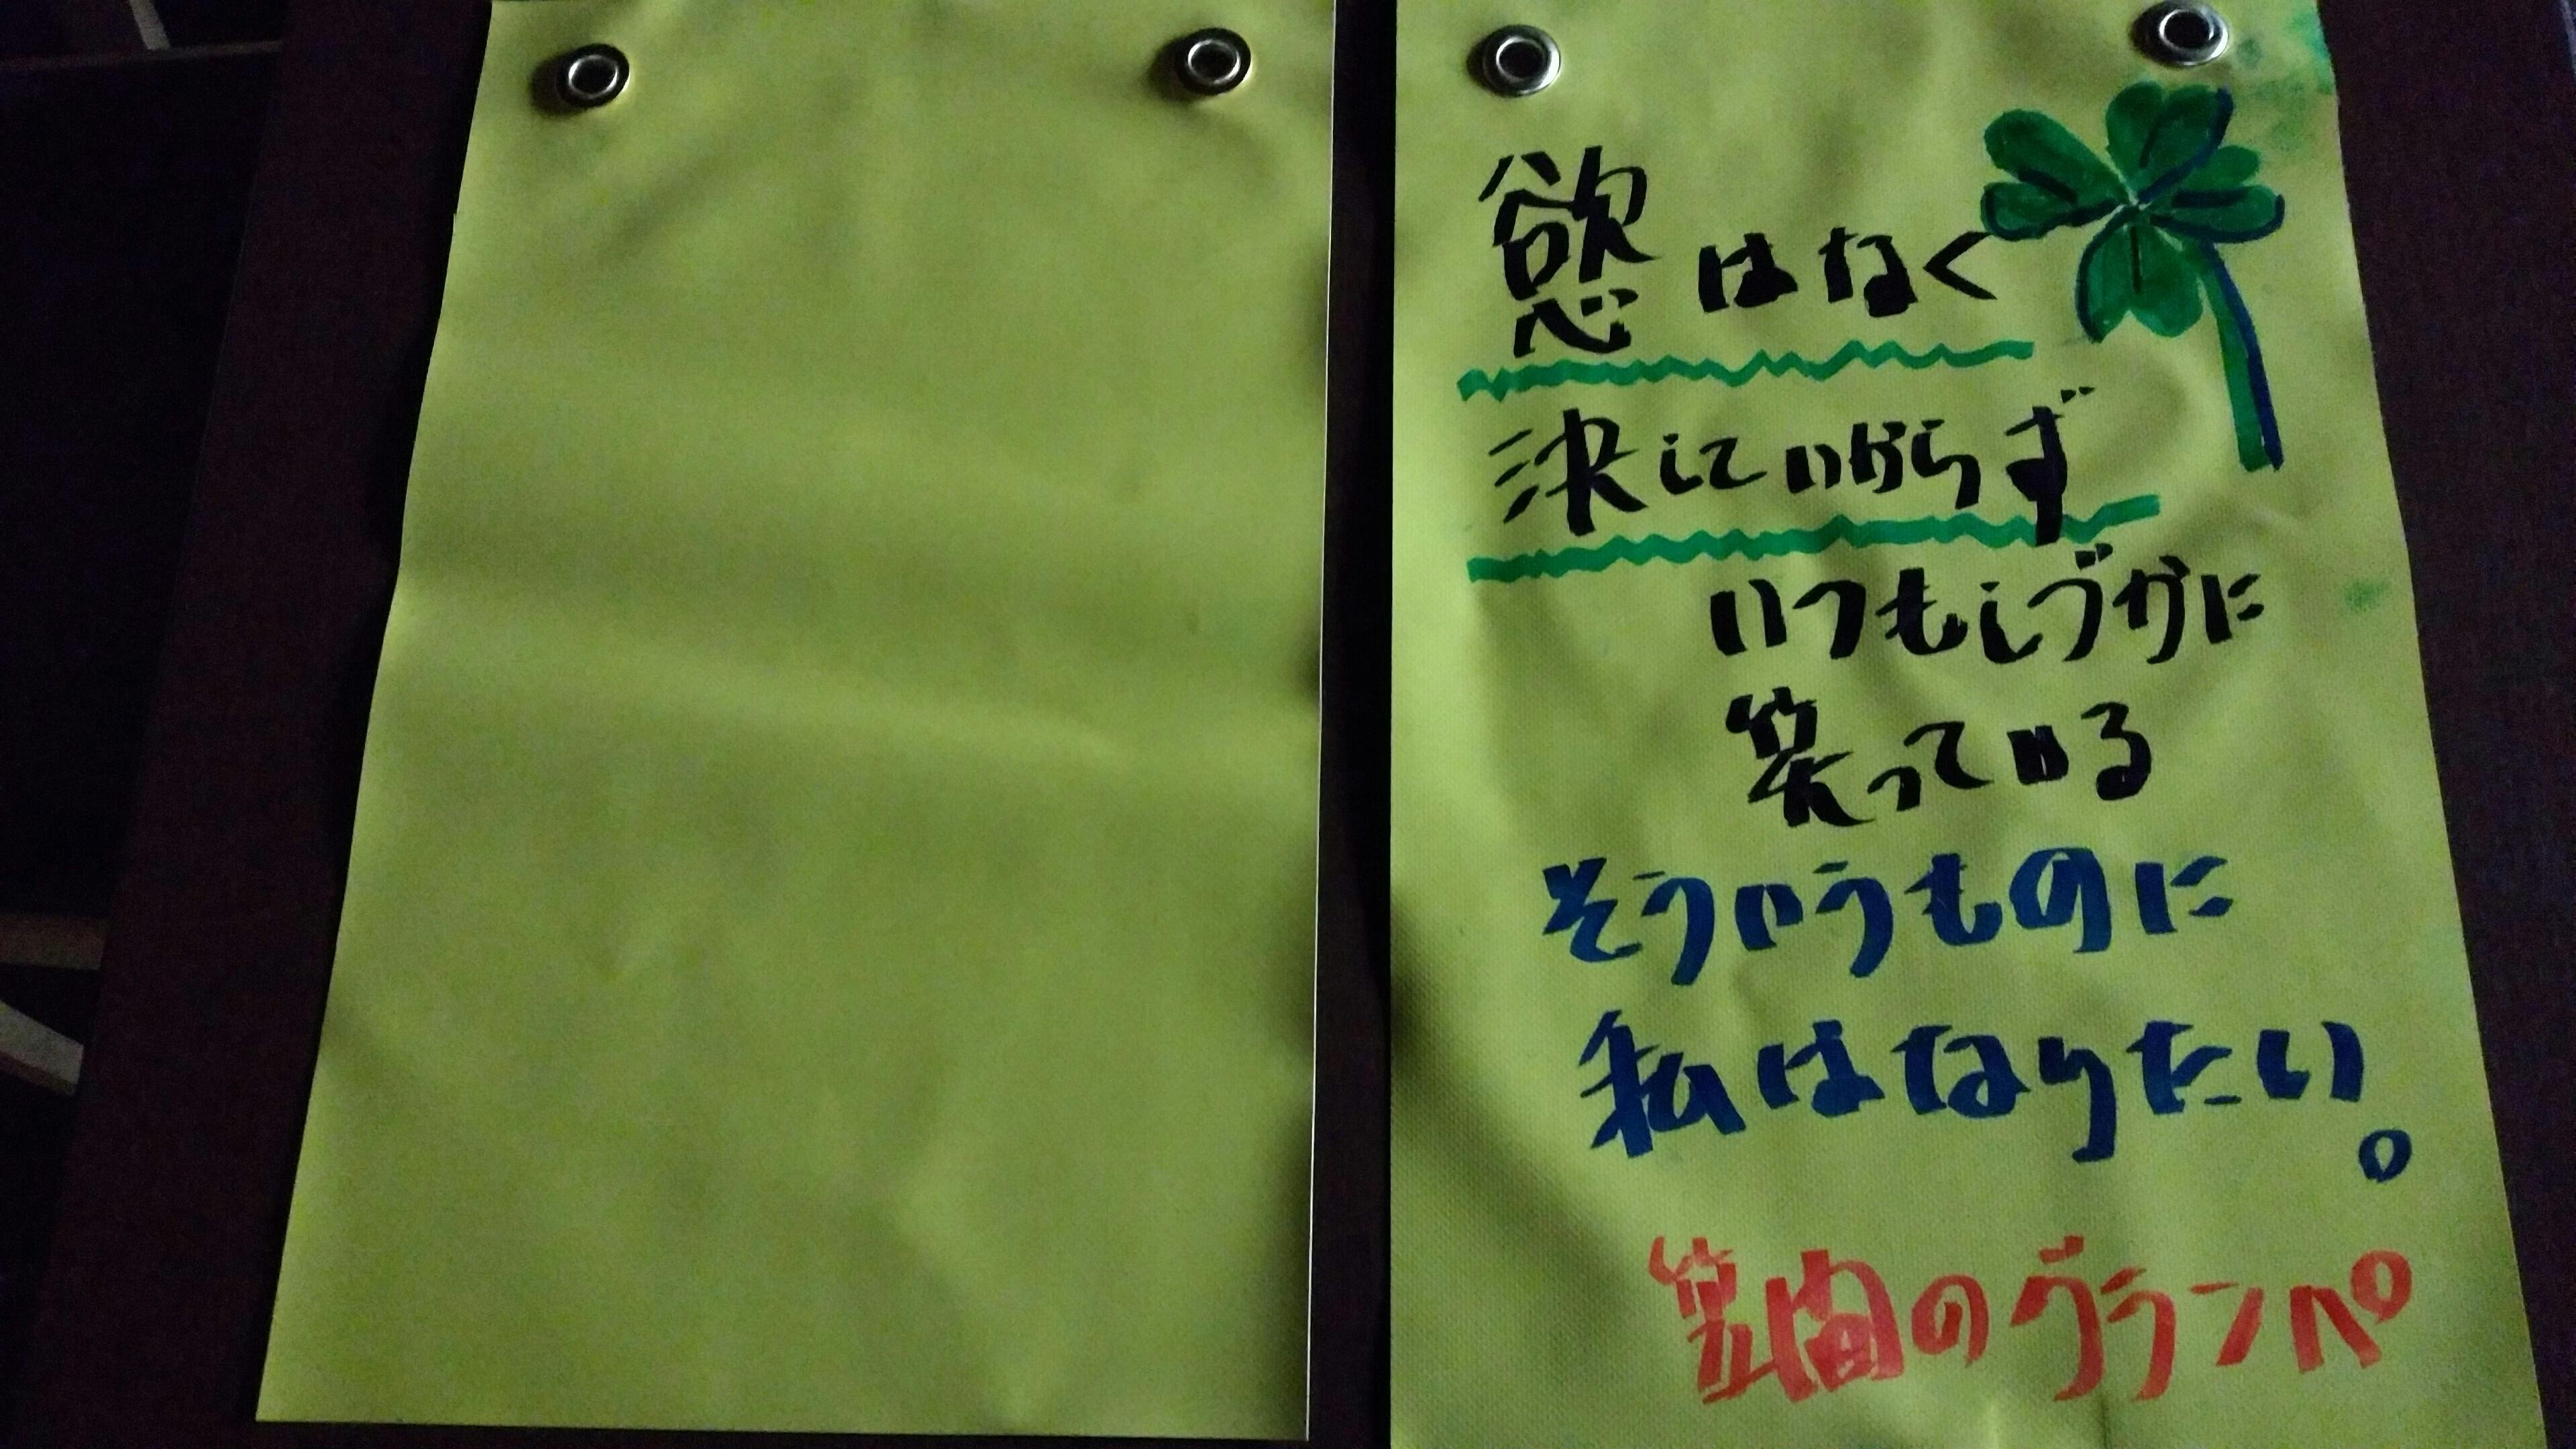 慾はなく
決していからず
いつもしづかに
笑っている
そういうものに
私はなりたい。
笠間のグランパ